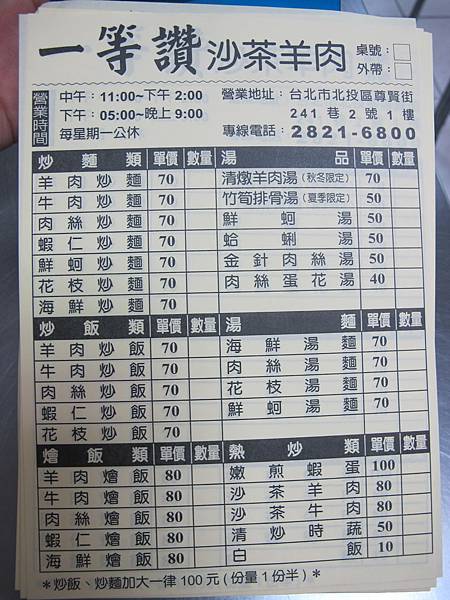 一等讚沙茶羊肉 桌號：
外帶：
營業時間
中午：11:00~下午 2:00
下午：05:00~晚上 9:00
每星期一公休
營業地址：台北市北投區尊賢街
241 巷 2 號 1 樓
專線電話：2821-6800
炒麵類 單價 數量
羊肉炒麵 70
牛肉炒麵 70
肉絲炒麵 70
蝦仁炒麵 70
鮮蚵炒麵 70
花枝炒麵 70
海鮮炒麵 70
炒飯類 單價 數量
羊肉炒飯 70
牛肉炒飯 70
肉絲炒飯 70
蝦仁炒飯 70
花枝炒飯 70
燴飯類 單價 數量
羊肉燴飯 80
牛肉燴飯 80
肉絲燴飯 80
蝦仁燴飯 80
海鮮燴飯 80
湯品 單價 數量
清燉羊肉湯（秋冬限定） 70
竹筍排骨湯（夏季限定） 50
鮮蚵湯 50
蛤蜊湯 50
金針肉絲湯 50
肉絲蛋花湯 40
湯麵 單價 數量
海鮮湯麵 70
肉絲湯麵 70
花枝湯麵 70
鮮蚵湯麵 70
熱炒類 單價 數量
嫩煎蝦蛋 100
沙茶羊肉 80
沙茶牛肉 80
清炒時蔬 50
白飯 10
＊炒飯、炒麵加大一律 100 元 ( 份量 1 份半 ) ＊